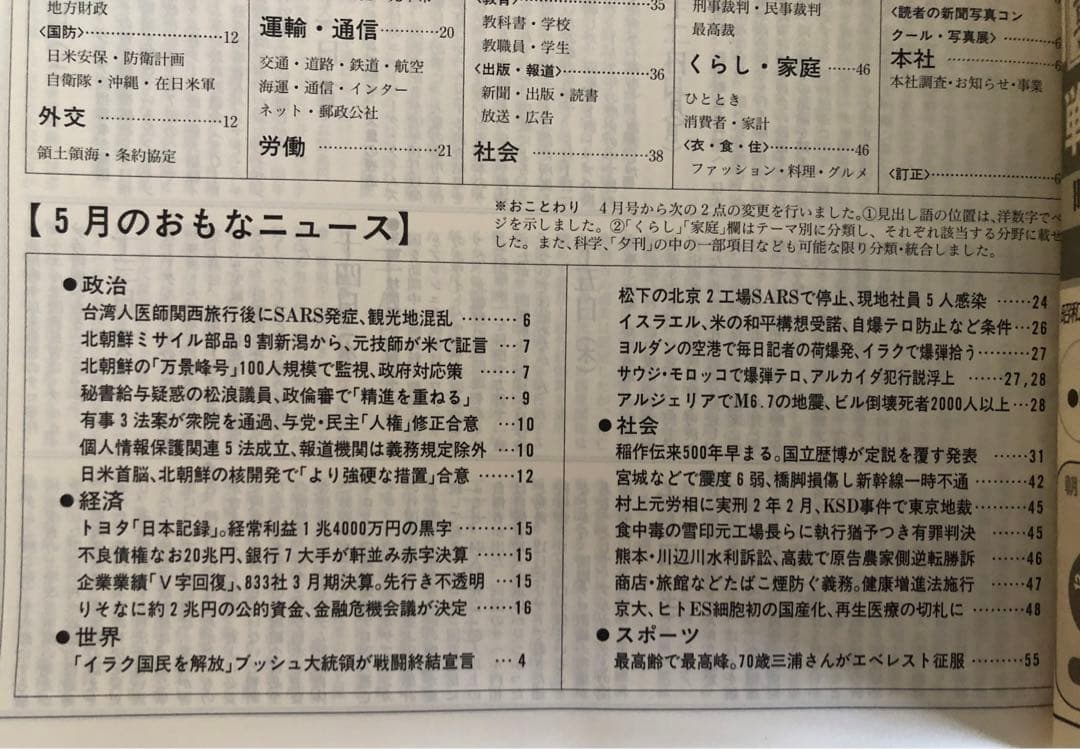 地方財政
<国防>……………………12
日米安保・防衛計画
自衛隊・沖縄・在日米軍
外交 ……………………12
領土領海・条約協定
運輸・通信…………20
交通・道路・鉄道・航空
海運・通信・インター
ネット・郵政公社
労働 ……………………21
35
教科書・学校
教職員・学生
<出版・報道>……………36
新聞・出版・読書
放送・広告
社会 ……………………38
刑事裁判・民事裁判
最高裁
くらし・家庭 ……46
ひととき
消費者・家計
<衣・食・住>……………46
ファッション・料理・グルメ
<読者の新聞写真コン
クール・写真展>………6
本社 ……………………6
本社調査・お知らせ・事業
<訂正>……………………6
【5月のおもなニュース】
※おことわり 4月号から次の2点の変更を行いました。①見出し語の位置は、洋数字でペ
ジを示しました。②「くらし」「家庭」欄はテーマ別に分類し、それぞれ該当する分野に載せ
した。また、科学、「夕刊」の中の一部項目なども可能な限り分類・統合しました。
●政治
台湾人医師関西旅行後にSARS発症、観光地混乱 ………6
北朝鮮ミサイル部品9割新潟から、元技師が米で証言 …7
北朝鮮の「万景峰号」100人規模で監視、政府対応策 …7
秘書給与疑惑の松浪議員、政倫審で「精進を重ねる」 …9
有事3法案が衆院を通過、与党・民主「人権」修正合意 …10
個人情報保護関連5法成立、報道機関は義務規定除外 …10
日米首脳、北朝鮮の核開発で「より強硬な措置」合意 …12
●経済
トヨタ「日本記録」。経常利益1兆4000万円の黒字 ………15
不良債権なお20兆円、銀行7大手が軒並み赤字決算 ……15
企業業績「V字回復」、833社3月期決算。先行き不透明 …15
りそなに約2兆円の公的資金、金融危機会議が決定 ……16
●世界
「イラク国民を解放」ブッシュ大統領が戦闘終結宣言 …4
松下の北京2工場SARSで停止、現地社員5人感染 ……24
イスラエル、米の和平構想受諾、自爆テロ防止など条件…26
ヨルダンの空港で毎日記者の荷爆発、イラクで爆弾拾う……27
サウジ・モロッコで爆弾テロ、アルカイダ犯行説浮上 ……27,28
アルジェリアでM6.7の地震、ビル倒壊死者2000人以上…28
●社会
稲作伝来500年早まる。国立歴博が定説を覆す発表 ……31
宮城などで震度6弱、橋脚損傷し新幹線一時不通 ………42
村上元労相に実刑2年2月、KSD事件で東京地裁………45
食中毒の雪印元工場長らに執行猶予つき有罪判決 ……45
熊本・川辺川水利訴訟、高裁で原告農家側逆転勝訴 ……46
商店・旅館などたばこ煙防ぐ義務。健康増進法施行 ……47
京大、ヒトES細胞初の国産化、再生医療の切札に ……48
●スポーツ
最高齢で最高峰。70歳三浦さんがエベレスト征服 ………55